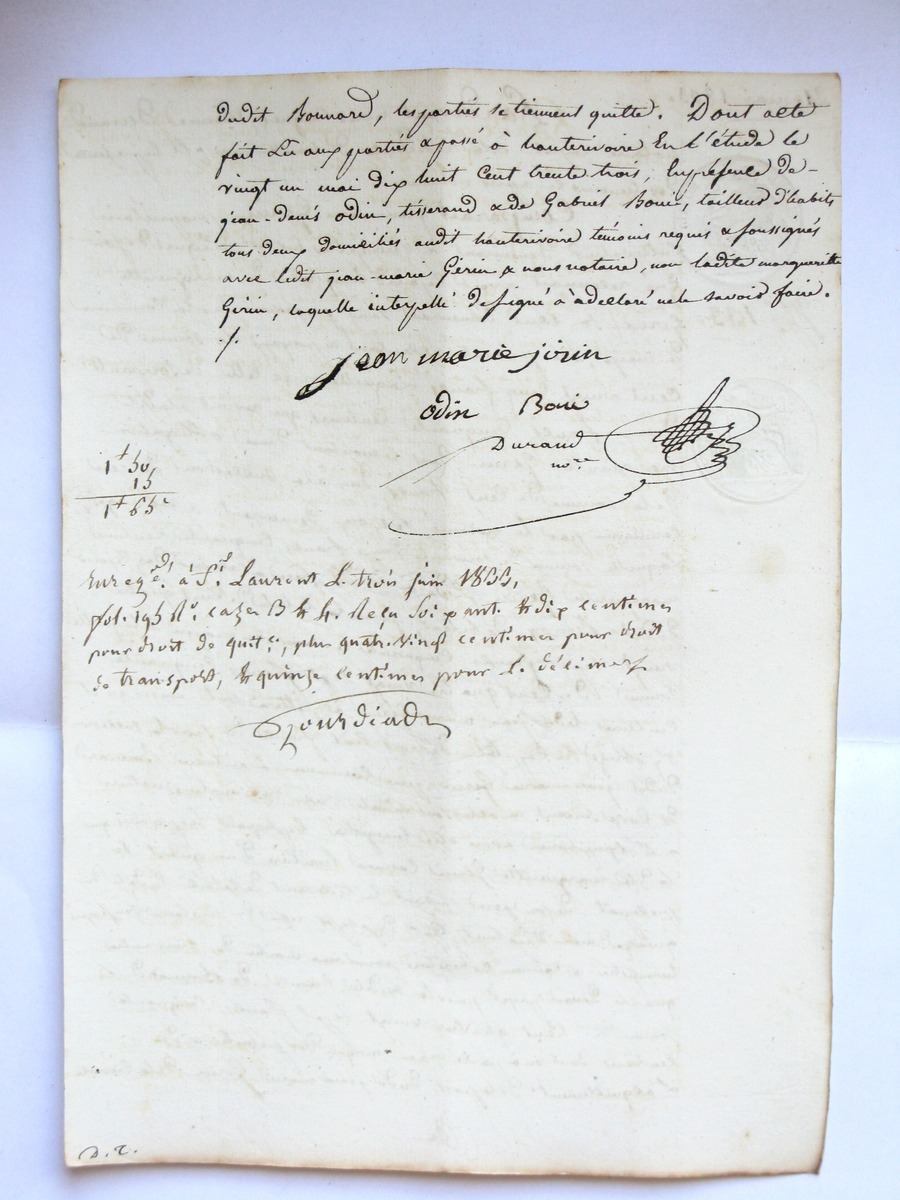 dudit Bonnard, les parties se tiennent quitte. Dont acte
fait Lu aux parties & passé à hauterivoire En l'étude le
vingt un mai dix huit Cent trente trois, En présence de-
jean-denis odin, tisserand & de Gabriel Boué, tailleur d'habits
tous deux domiciliés audit hauterivoire témoins requis & soussignés
avec ledit jean-marie Gérin & nous notaire, non ladite margueritte
Gérin, laquelle interpellé de signé à a déclaré ne le savoir faire.
./.
jean marie jérin
odin Boué
Durand
no.re
1f 50
15
1f 65c
Enreg.é à S.t Laurent le trois juin 1833,
fol. 195 R.o cazes 3 & 4. Reçu soixante & dix centimes
pour droit de quit.ce, plus quatre vingt centimes pour droit
de transport, & quinze centimes pour le décime
D. T.